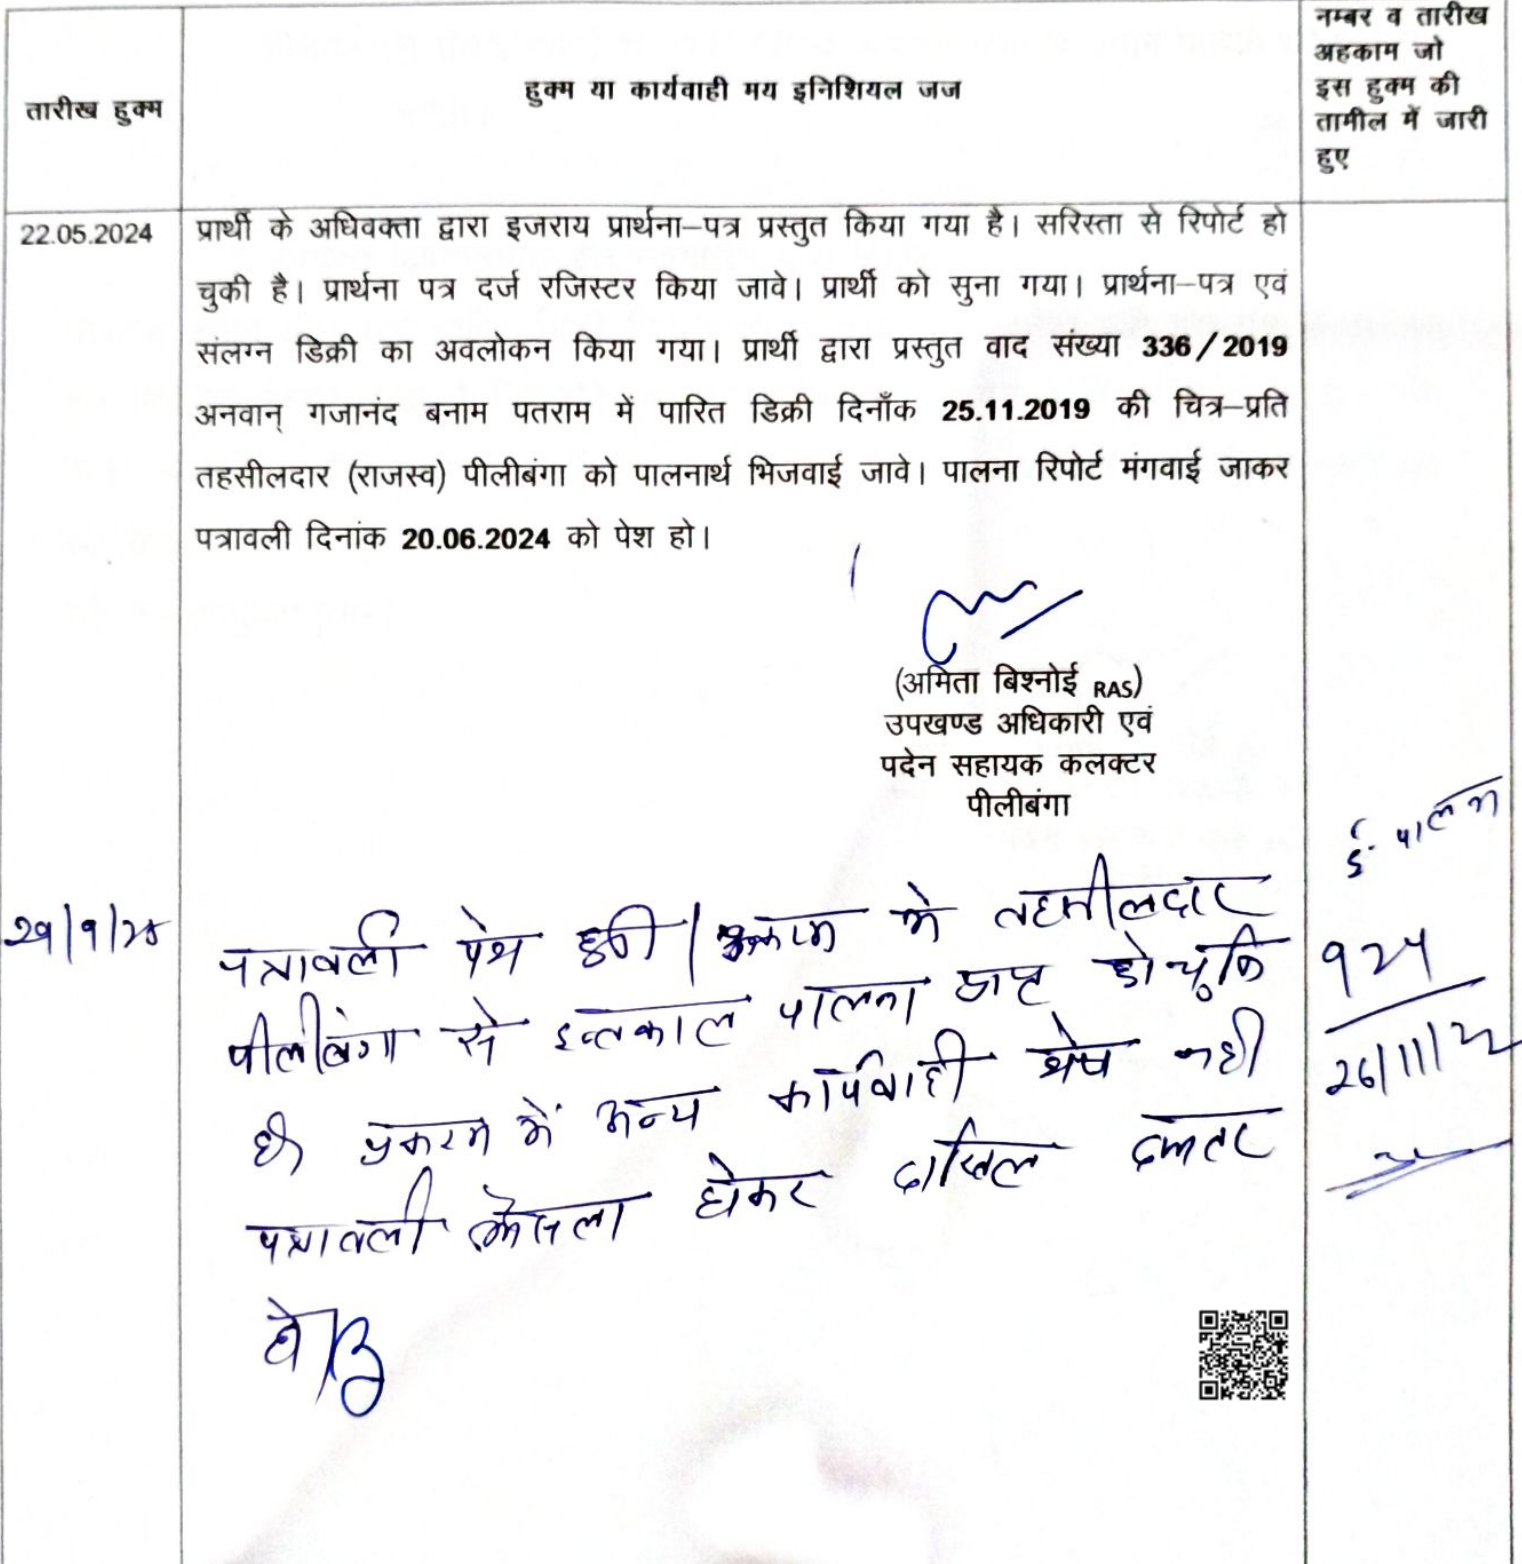 तारीख हुक्म
हुक्म या कार्यवाही मय इनिशियल जज
नम्बर व तारीख
अहकाम जो
इस हुक्म की
तामील में जारी
हुए
22.05.2024
प्रार्थी के अधिवक्ता द्वारा इजराय प्रार्थना–पत्र प्रस्तुत किया गया है। सरिस्ता से रिपोर्ट हो
चुकी है। प्रार्थना पत्र दर्ज रजिस्टर किया जावे। प्रार्थी को सुना गया। प्रार्थना–पत्र एवं
संलग्न डिक्री का अवलोकन किया गया। प्रार्थी द्वारा प्रस्तुत वाद संख्या 336/2019
अनवान् गजानंद बनाम पतराम में पारित डिक्री दिनाँक 25.11.2019 की चित्र–प्रति
तहसीलदार (राजस्व) पीलीबंगा को पालनार्थ भिजवाई जावे। पालना रिपोर्ट मंगवाई जाकर
पत्रावली दिनांक 20.06.2024 को पेश हो।
(अमिता बिश्नोई RAS)
उपखण्ड अधिकारी एवं
पदेन सहायक कलक्टर
पीलीबंगा
पत्रावली पेश हुयी। प्रकरण में तहसीलदार
पीलीबंगा से इन्तकाल पालना प्राप्त हो चुकि
है प्रकरण में अन्य कार्यवाही शेष नही
पत्रावली फैसला होकर दाखिल दफ्तर
हो।
26/11/